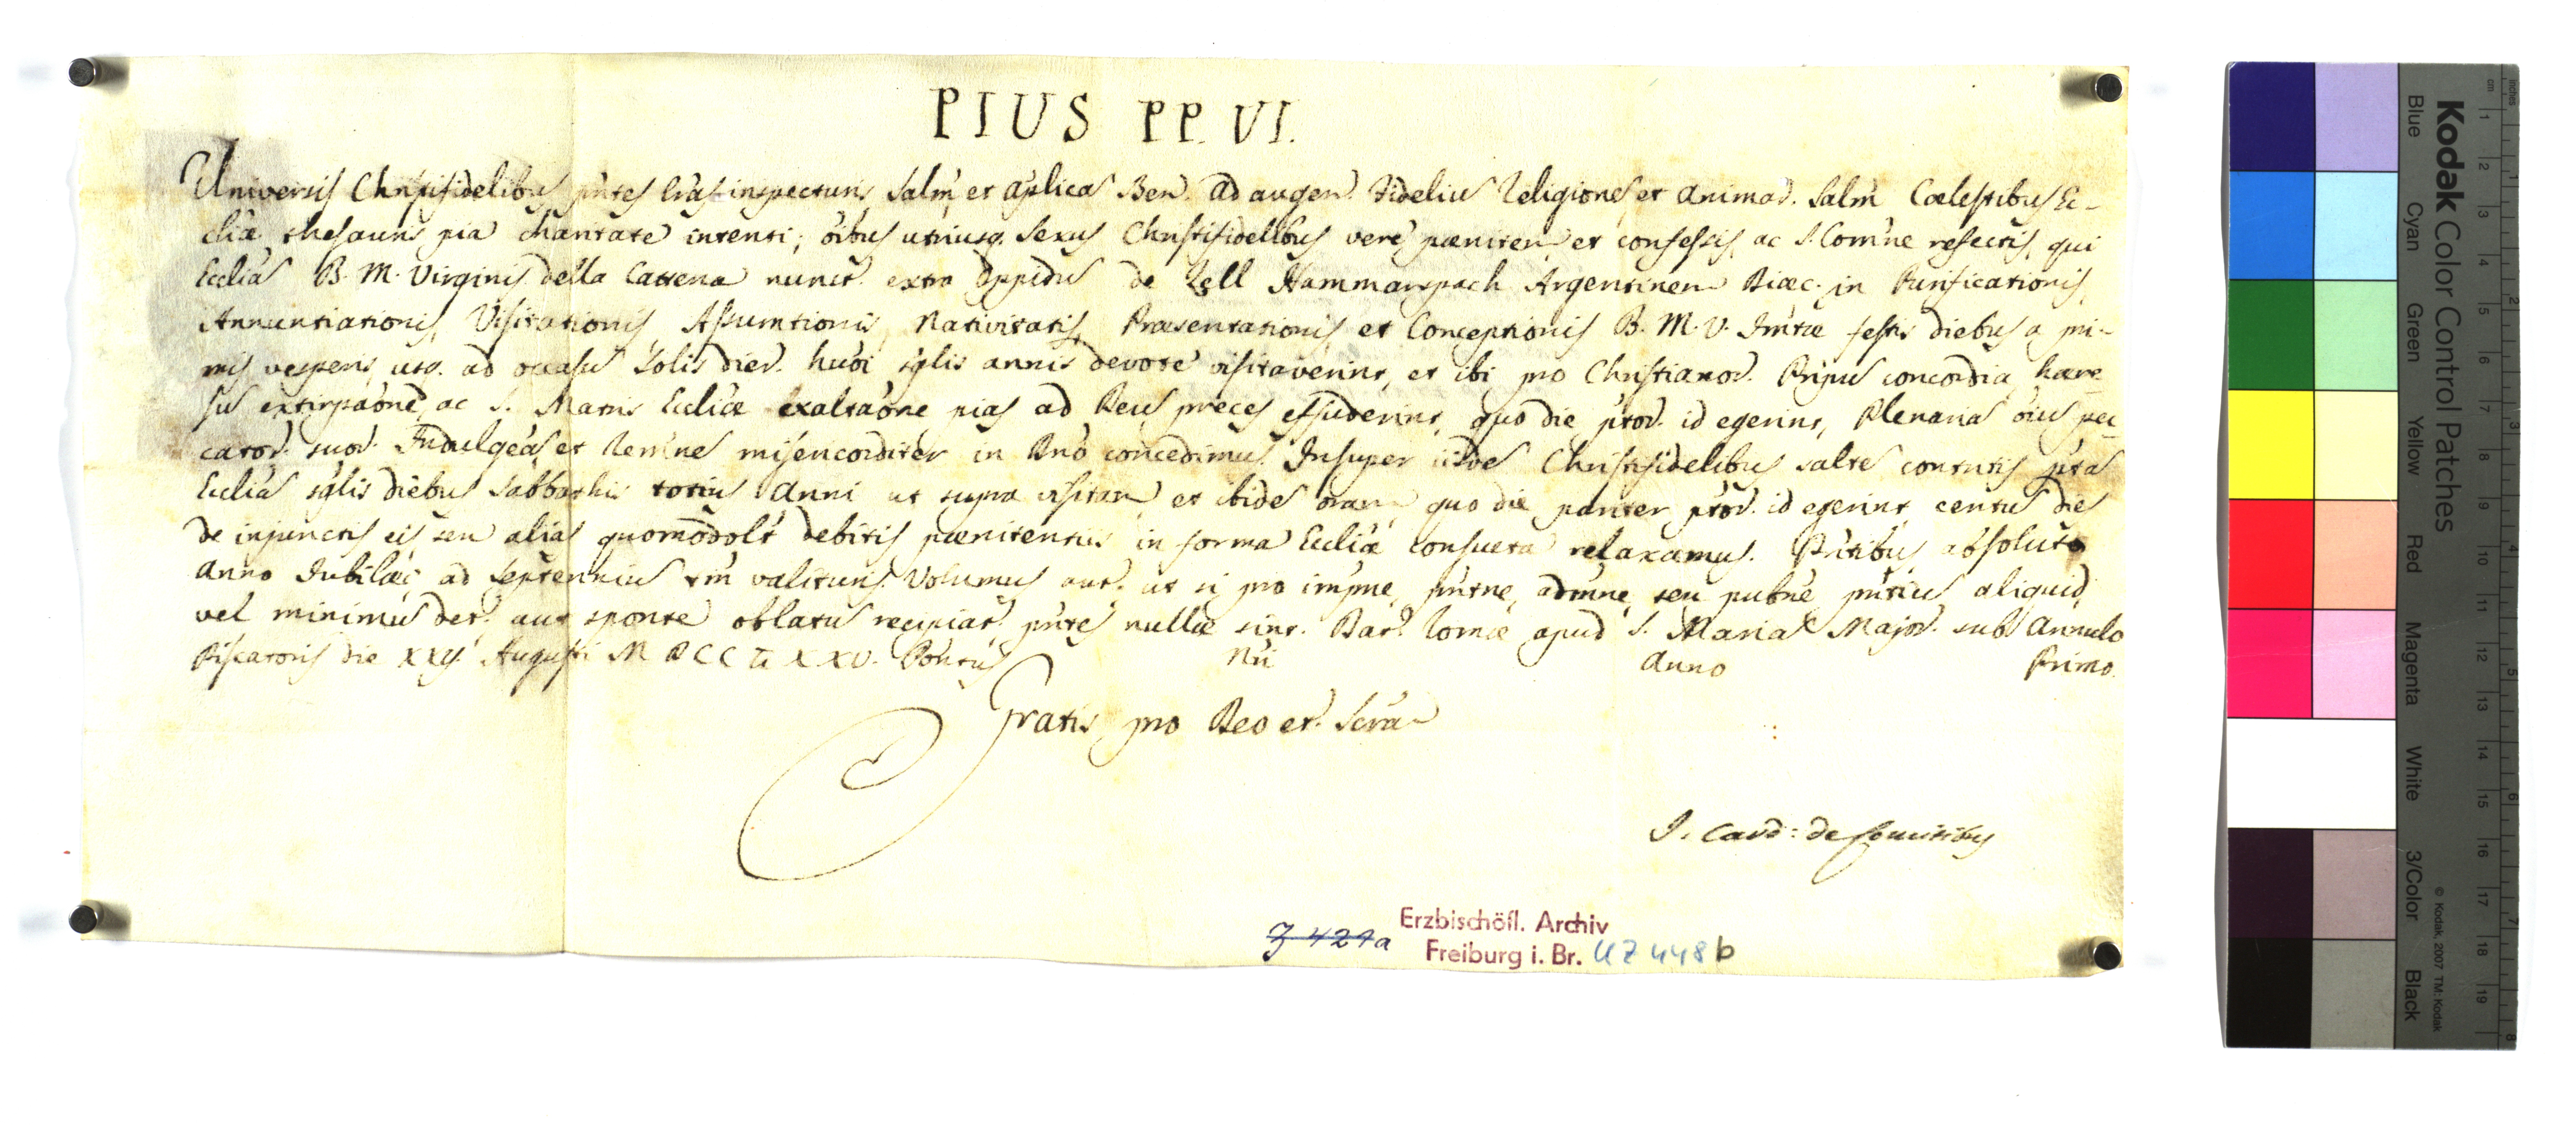 PIUS PP. VI.
Universis Christifidelibus pntes lras inspecturis salm et aplicaɱ Ben. Ad augen. fideliuɱ Religioneɱ et animar. salm Coelestibus Ec-
cliae thesauris pia charitate intenti, oibus utriusq. sexus Christifidelibus vere poeniten et confessis, ac S. Comne refectis, qui
Eccliaɱ B. M. Virginis della Cattena nuncr. extra Oppiduɱ de Zell Hammarspach Argentinen Dioec. in Purificationis,
Annuntiationis, Visitationis, Assumtionis, Nativitatis, Praesentationis et Conceptionis B. M. V. Imtae festis diebus a pri-
mis vesperis usq. ad occasuɱ Solis dier. huoi sglis annis devote visitaverint, et ibi pro Christianor. Pripuɱ concordia, haere
suɱ extirpaone, ac S. Matris Eccliae exaltaone pias ad Deuɱ preces effuderint, quo die pror. id egerint, Plenariaɱ oiuɱ pec-
cator. suor. Indulgeaɱ et Remneɱ misericorditer in Dno concedimus. Insuper iisdeɱ Christifidelibus salteɱ contritis ptaɱ
Eccliaɱ sglis diebus Sabbathis totius Anni ut supra visitan et ibideɱ oran quo die pariter pror. id egerint centuɱ dies
de injunctis eis seu alias quomodolt debitis poenitentiis in forma Eccliae consueta relaxamus. Pntibus absoluto
anno Jubilaei ad Septenniuɱ tm valituris. Volumus aut. ut si pro impne, pntne, admne, seu pubne pntiuɱ aliquid,
vel minimuɱ det. aut sponte oblatuɱ recipiat. pntes nullae sint. Dat. Romae apud S. Mariaɱ Major. sub Annulo
Piscatoris die XXII Augusti MDCCLXXV. Pontus Nri Anno Primo.
Gratis pro Deo et Scra
I. Card: de Comitibus
J 427a
Erzbischöfl. Archiv
Freiburg i. Br. UZ 448b
Kodak Color Control Patches
Blue Cyan Green Yellow Red Magenta White 3/Color Black
© Kodak, 2007 TM: Kodak
inches 1 2 3 4 5 6 7 8
cm 1 2 3 4 5 6 7 8 9 10 11 12 13 14 15 16 17 18 19